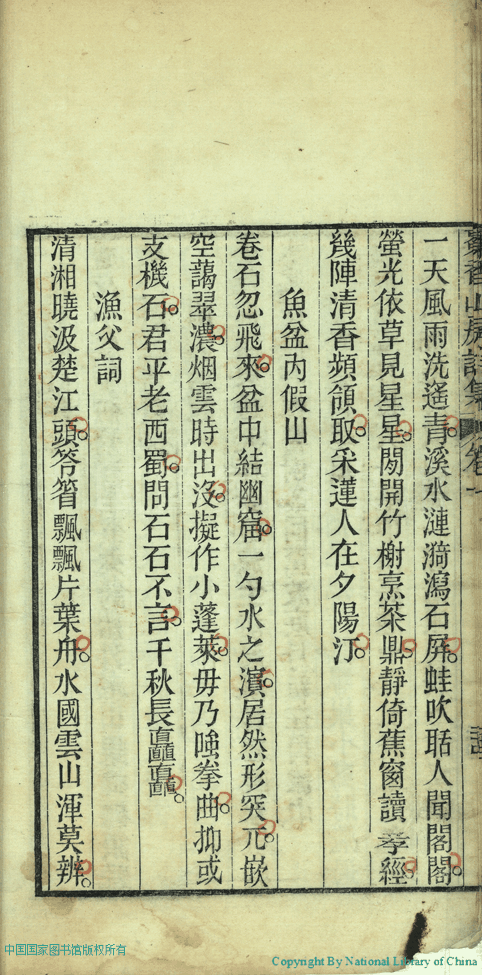 香山房詩集 卷一
一天風雨洗遙青溪水漣漪瀉石屏蛙吹聒人聞閣閣
螢光依草見星星閒開竹榭烹茶鼎靜倚蕉窗讀孝經
幾陣清香頻領取采蓮人在夕陽汀
魚盆內假山
卷石忽飛來盆中結幽窟一勺水之濵居然形突兀嵌
空藹翠濃烟雲時出沒擬作小蓬萊毋乃嗤拳曲抑或
支機石君平老西蜀問石石不言千秋長矗矗
漁父詞
清湘曉汲楚江頭笭箵飄飄片葉舟水國雲山渾莫辨
中国国家图书馆版权所有
Copyright By National Library of China